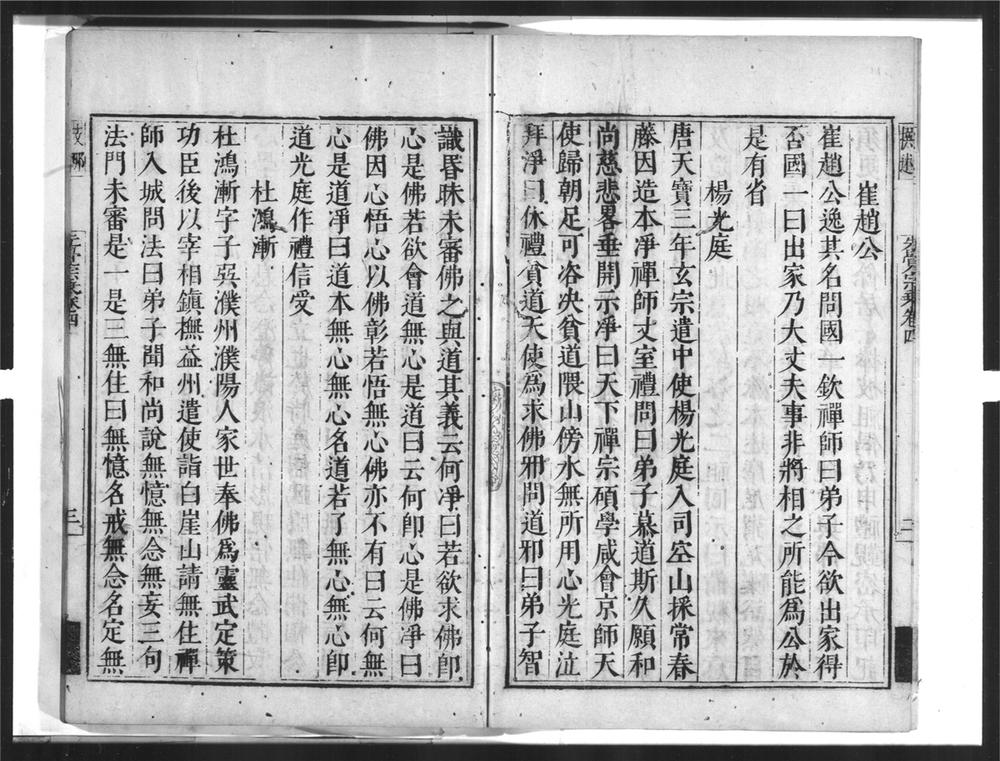 崔趙公
崔趙公逸其名問國一欽禪師曰弟子今欲出家得
否國一曰出家乃大丈夫事非將相之所能爲公於
是有省
楊光庭
唐天寶三年玄宗遣中使楊光庭入司空山採常春
藤因造本凈禪師丈室禮問曰弟子慕道斯久願和
尚慈悲畧垂開示凈曰天下禪宗碩學咸會京師天
使歸朝足可咨决貧道隈山傍水無所用心光庭泣
拜凈曰休禮貧道天使爲求佛邪問道邪曰弟子智
識昏昧未審佛之與道其義云何凈曰若欲求佛卽
心是佛若欲會道無心是道曰云何卽心是佛凈曰
佛因心悟心以佛彰若悟無心佛亦不有曰云何無
心是道凈曰道本無心無心名道若了無心無心卽
道光庭作禮信受
杜鴻漸
杜鴻漸字子巽濮州濮陽人家世奉佛爲靈武定策
功臣後以宰相鎮撫益州遣使詣白崖山請無住禪
師入城問法曰弟子聞和尚說無憶無念無妄三句
法門未審是一是三無住曰無憶名戒無念名定無